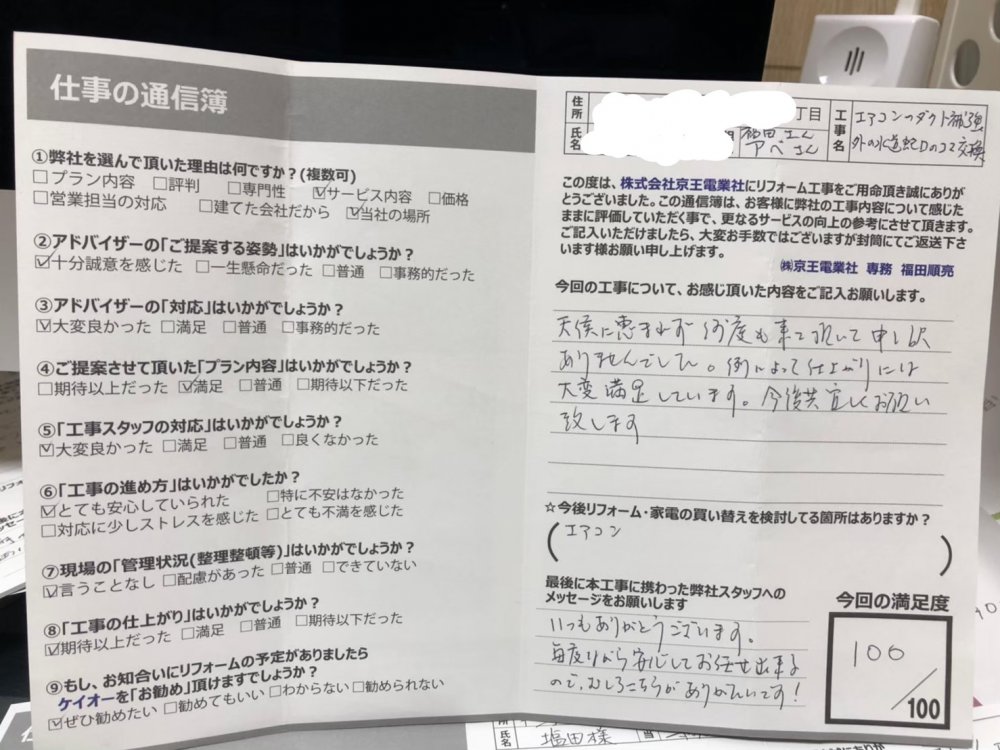 仕事の通信簿
①弊社を選んで頂いた理由は何ですか?(複数可)
□プラン内容 □評判 □専門性 ☑サービス内容 □価格
□営業担当の対応 □建てた会社だから ☑当社の場所
②アドバイザーの「ご提案する姿勢」はいかがでしょうか?
☑十分誠意を感じた □一生懸命だった □普通 □事務的だった
③アドバイザーの「対応」はいかがでしょうか?
☑大変良かった □満足 □普通 □事務的だった
④ご提案させて頂いた「プラン内容」はいかがでしょうか?
□期待以上だった ☑満足 □普通 □期待以下だった
⑤「工事スタッフの対応」はいかがでしょうか?
☑大変良かった □満足 □普通 □良くなかった
⑥「工事の進め方」はいかがでしたか?
☑とても安心していられた □特に不安はなかった
□対応に少しストレスを感じた □とても不満を感じた
⑦現場の「管理状況(整理整頓等)」はいかがでしょうか?
☑言うことなし □配慮があった □普通 □できていない
⑧「工事の仕上がり」はいかがでしょうか?
☑期待以上だった □満足 □普通 □期待以下だった
⑨もし、お知合いにリフォームの予定がありましたら
ケイオーを「お勧め」頂けますでしょうか?
☑ぜひ勧めたい □勧めてもいい □わからない □勧められない
住所
丁目
氏名
福田さん
アベさん
工事名
エアコンのダクト補強
外の水道蛇口のコマ交換
この度は、株式会社京王電業社にリフォーム工事をご用命頂き誠にありが
とうございました。この通信簿は、お客様に弊社の工事内容について感じた
ままに評価していただく事で、更なるサービスの向上の参考にさせて頂きます。
ご記入いただけましたら、大変お手数ではございますが封筒にてご返送下さ
います様お願い申し上げます。
㈱京王電業社 専務 福田順亮
今回の工事について、お感じ頂いた内容をご記入お願いします。
天候に恵まれず何度も来て頂いて申し訳
ありませんでした。例によって仕上がりには
大変満足しています。今後共宜しくお願い
致します
☆今後リフォーム・家電の買い替えを検討してる箇所はありますか?
(エアコン)
最後に本工事に携わった弊社スタッフへの
メッセージをお願いします
いつもありがとうございます。
毎度りから安心してお任せ出来る
ので、むしろこちらがありがたいです!
今回の満足度
100/100
氏名 塩田様